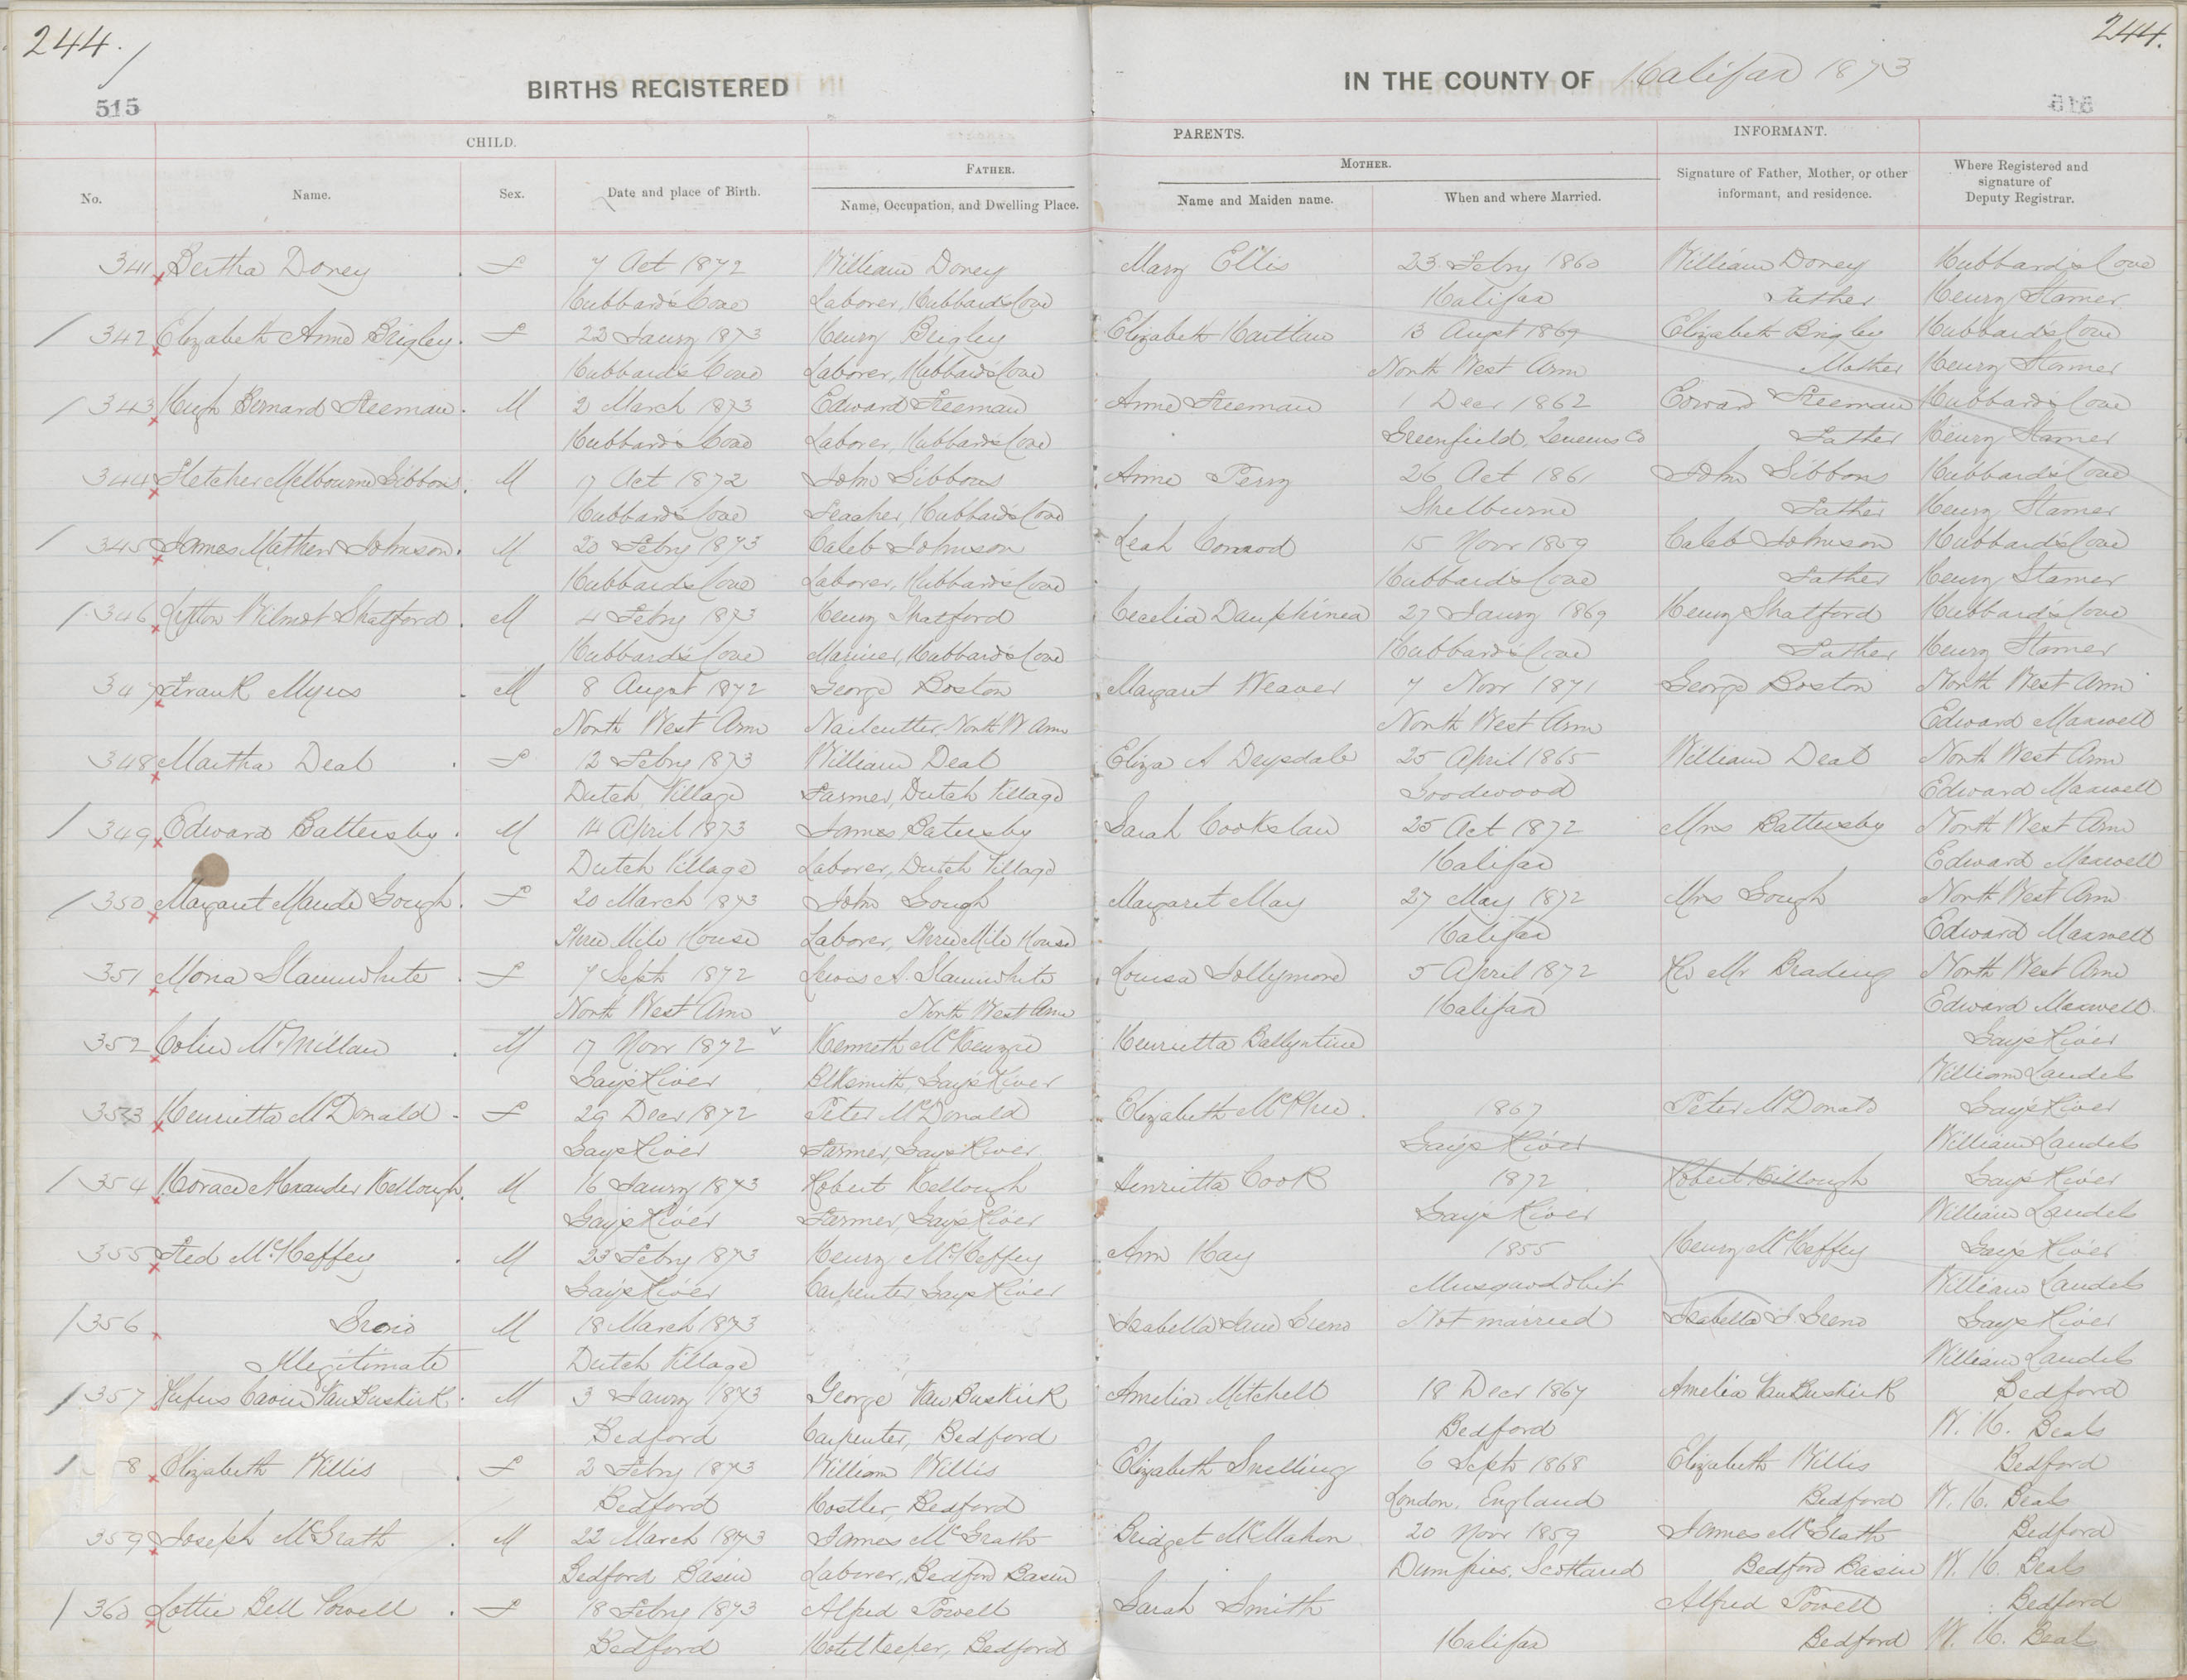 244.
244.
BIRTHS REGISTERED
IN THE COUNTY OF Halifax 1873
515
515
CHILD.
PARENTS.
INFORMANT.
FATHER.
MOTHER.
No.
Name.
Sex.
Date and place of Birth.
Name, Occupation, and Dwelling Place.
Name and Maiden name.
When and where Married.
Signature of Father, Mother, or other informant, and residence.
Where Registered and signature of Deputy Registrar.
341 Bertha Doney F 7 Oct 1872 William Doney Mary Ellis 23 Febry 1860 William Doney Hubbard's Cove
Hubbard's Cove Laborer, Hubbards Cove Halifax Father Henry Stamer
342 Elizabeth Anne Brigley F 22 Jany 1873 Henry Brigley Elizabeth 13 Augst 1869 Elizabeth Brigley Hubbard's Cove
Hubbard's Cove Laborer, Hubbards Cove North West Arm Mother Henry Stamer
343 Hugh Bernard Freeman M 2 March 1873 Edward Freeman Anne Freeman 1 Decr 1862 Edward Freeman Hubbard's Cove
Hubbard's Cove Laborer, Hubbards Cove Greenfield, Queens Co Father Henry Stamer
344 Fletcher Melbourne Gibbons M 17 Oct 1872 John Gibbons Anne Perry 26 Oct 1861 John Gibbons Hubbard's Cove
Hubbard's Cove Teacher, Hubbards Cove Shelburne Father Henry Stamer
345 James Mathew Johnson M 20 Febry 1873 Caleb Johnson Leah Conrod 15 Novr 1859 Caleb Johnson Hubbard's Cove
Hubbard's Cove Laborer, Hubbards Cove Hubbard's Cove Father Henry Stamer
346 Wilmot Shatford M 4 Febry 1873 Henry Shatford Cecelia Dauphinea 27 Jany 1869 Henry Shatford Hubbard's Cove
Hubbard's Cove Mariner, Hubbards Cove Hubbard's Cove Father Henry Stamer
347 Frank Myers M 8 Augst 1872 George Boston Margaret Weaver 7 Novr 1871 George Boston North West Arm
North West Arm Nailcutter, North W Arm North West Arm Edward Maxwell
348 Martha Deal F 12 Febry 1873 William Deal Eliza A Deysdale 25 April 1865 William Deal North West Arm
Dutch Village Farmer, Dutch Village Goodwood Edward Maxwell
349 Edward Battersby M 14 April 1873 James Batersby Sarah Cookslaw 25 Oct 1872 Mrs Battersby North West Arm
Dutch Village Laborer, Dutch Village Halifax Edward Maxwell
350 Margaret Maude Gough F 20 March 1873 John Gough Margaret May 27 May 1872 Mrs Gough North West Arm
Three Mile House Laborer, Three Mile House Halifax Edward Maxwell
351 Mona Slaunwhite F 7 Septr 1872 Lewis A. Slaunwhite Louisa Jollymore 5 April 1872 Rev Mr Brading North West Arm
North West Arm North West Arm Halifax Edward Maxwell
352 Colin McMillan M 17 Novr 1872 Kenneth McKenzie Henrietta Ballyntine Gay's River
Gay's River Blksmith, Gay's River William Landels
353 Henrietta McDonald F 29 Decr 1872 Peter McDonald Elizabeth McPhee 1867 Peter McDonald Gay's River
Gays River Farmer, Gays River Gay's River William Landels
354 Horace Alexander Kellough M 16 Jany 1873 Robert Kellough Henrietta Cook 1872 Robert Killough Gay's River
Gay's River Farmer, Gay's River Gay's River William Landels
355 Fred McHeffey M 23 Febry 1873 Henry McHeffey Ann Hay 1855 Henry McHeffey Gay's River
Gay's River Carpenter, Gays River Musquodobit William Landels
356 M 18 March 1873 Isabella Jane Greno Not married Isabella J Greno Gays River
Illegitimate Dutch Village William Landels
357 Rufus VanBuskirk M 3 Jany 1873 George VanBuskirk Amelia Mitchell 18 Decr 1867 Amelia VanBuskirk Bedford
Bedford Carpenter, Bedford Bedford W. H. Beals
8 Elizabeth Willis F 2 Febry 1873 William Willis Elizabeth Snelling 6 Septr 1868 Elizabeth Willis Bedford
Bedford Hostler, Bedford London, England Bedford W. H. Beals
359 Joseph McGrath M 22 March 1873 James McGrath Bridget McMahon 20 Novr 1859 James McGrath Bedford
Bedford Basin Laborer, Bedford Basin Dumfries, Scotland Bedford Basin W. H. Beals
360 Lottie Bell Powell F 18 Febry 1873 Alfred Powell Sarah Smith Alfred Powell Bedford
Bedford Hotel Keeper, Bedford Halifax Bedford W. H. Beals